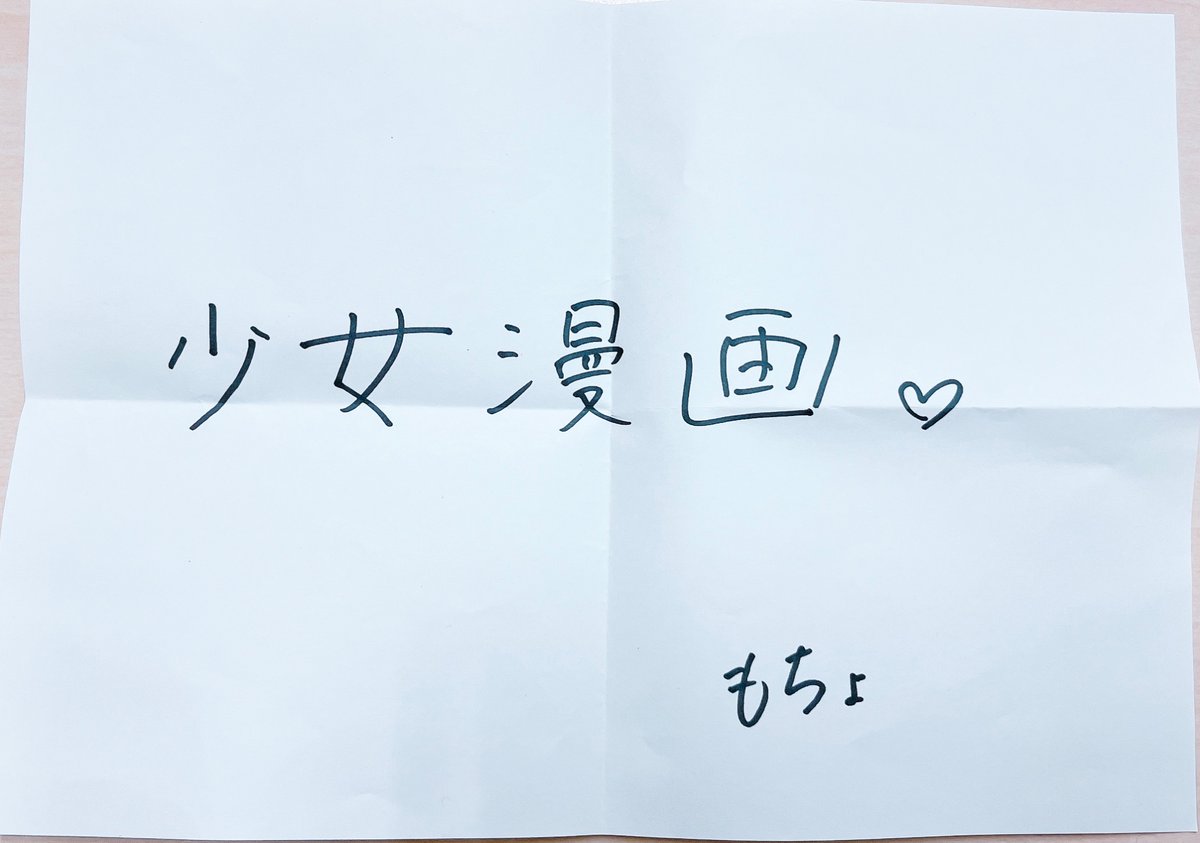 少女漫画♡
もちょ